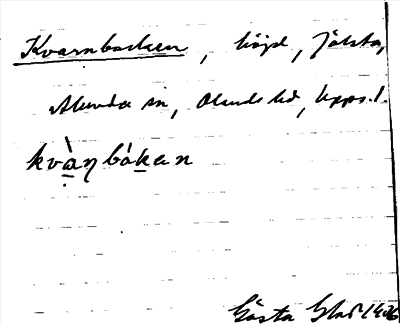 Kvarnbacken, höjd, Jälsta,
Alunda sn, Olands hd, Upps. l.
kvàṇbákan
Gösta